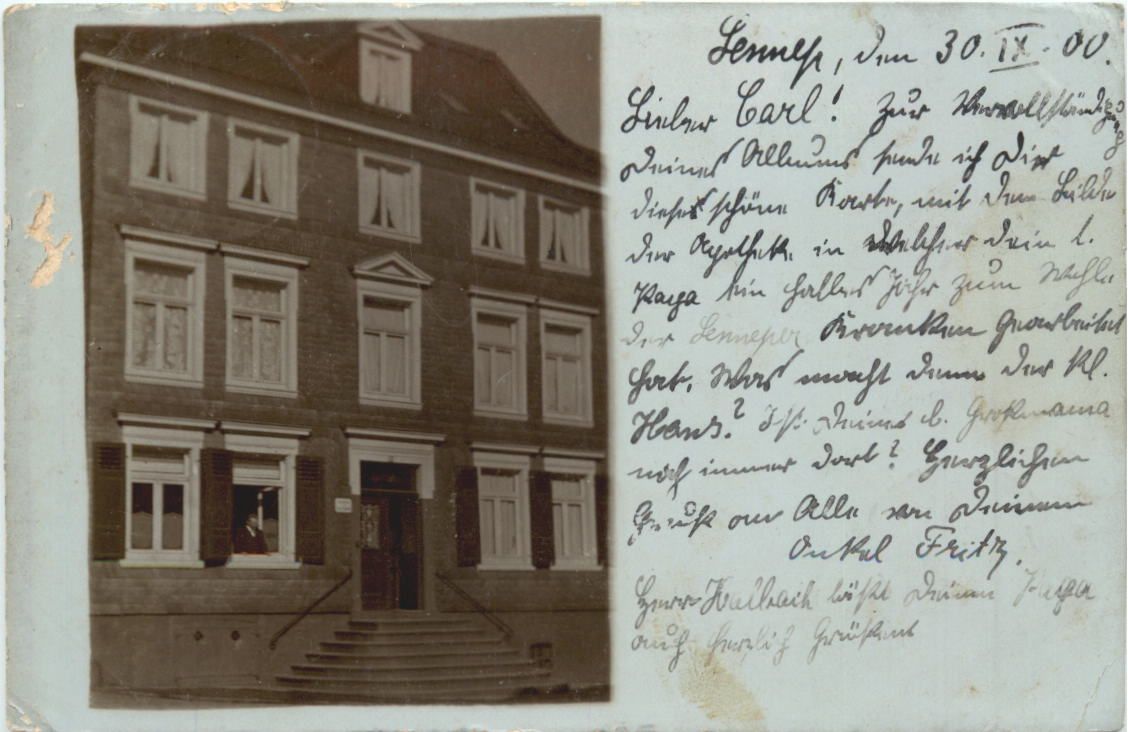 Lennep, den 30. IX. 00.
Lieber Carl! Zur Vervollständigung
Deines Albums sende ich Dir
diese schöne Karte, mit dem Bilde
der Apotheke, in welcher dein l.
Papa ein halbes Jahr zum Wohle
der Lenneper Kranken gearbeitet
hat. Was macht denn der kl.
Hans? Ist Deine l. Großmama
noch immer dort? Herzlichen
Gruß an Alle von Deinem
Onkel Fritz.
Herr läßt Deinen Papa
auch herzlich grüßen